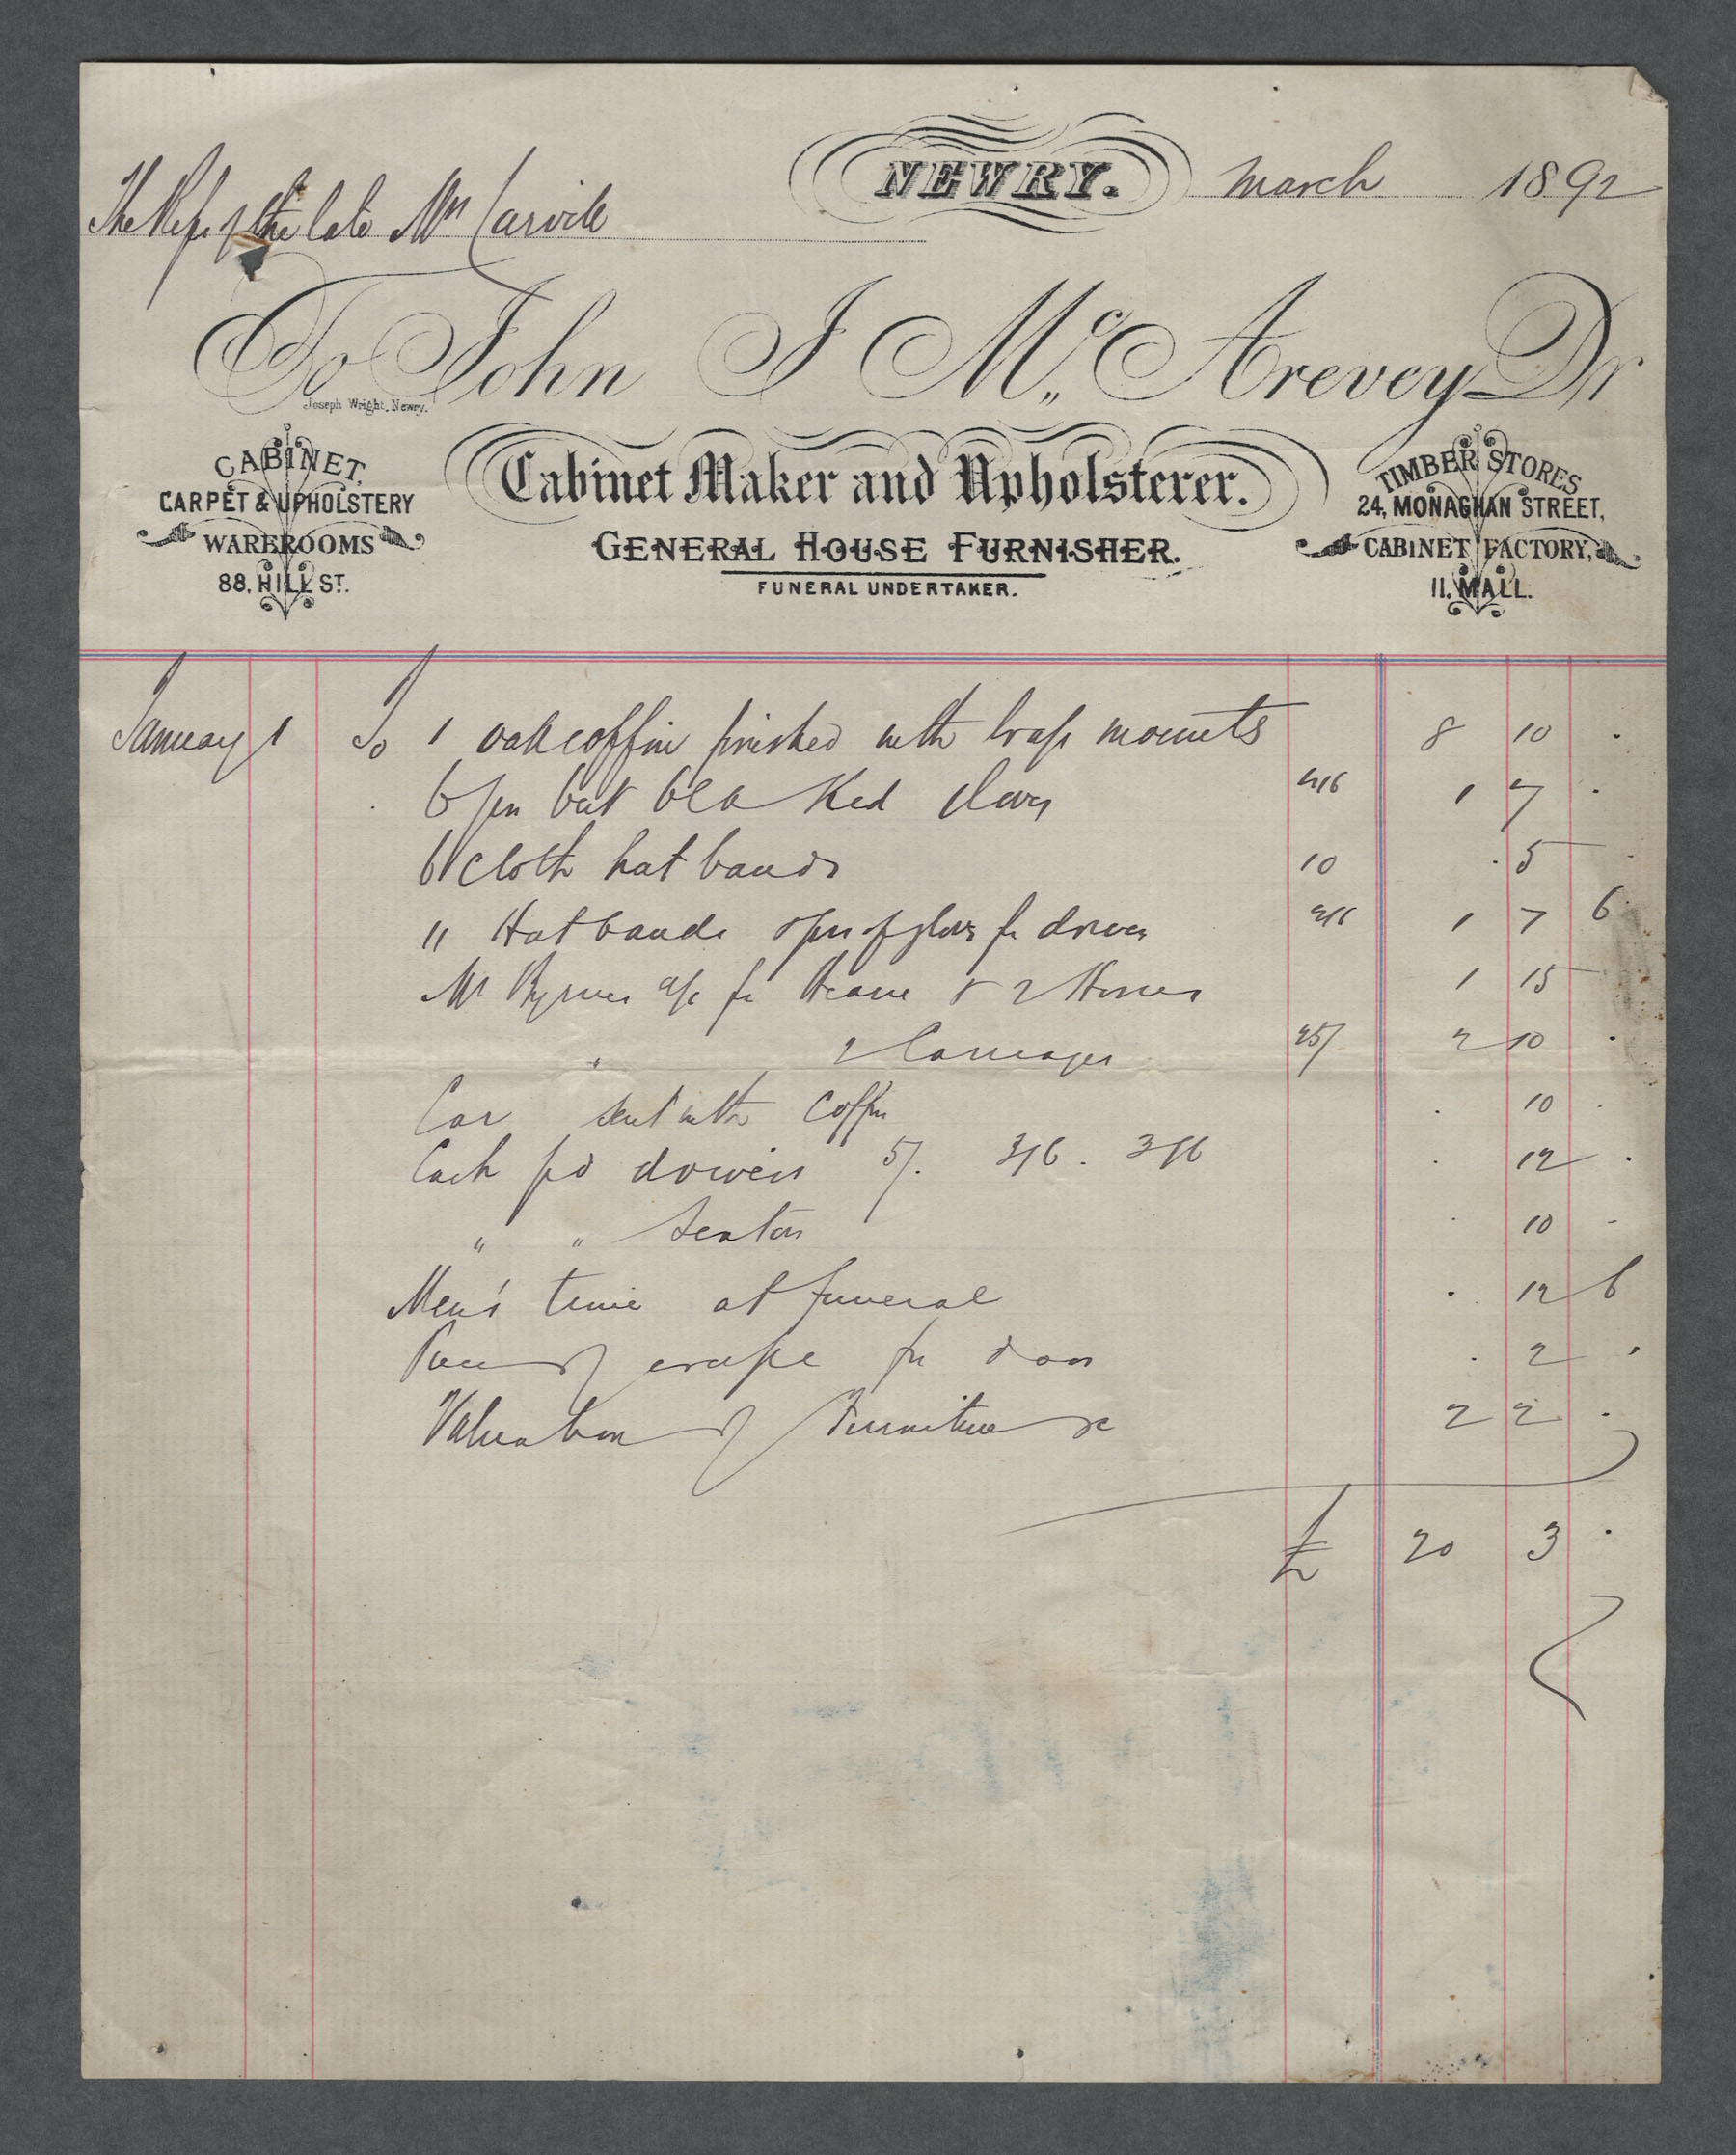 NEWRY. March 1892
The Reps of the late Mrs Carvile
To John J McArevey Dr
Joseph Wright, Newry.
CABINET,
CARPET & UPHOLSTERY
WAREROOMS
88, HILL ST.
Cabinet Maker and Upholsterer.
GENERAL HOUSE FURNISHER.
FUNERAL UNDERTAKER.
TIMBER STORES
24, MONAGHAN STREET,
CABINET FACTORY,
11, MALL.
January 1 To 1 oak coffin finished with brass mounts 8 10 .
6 prs best blacked gloves 4/6 1 7 .
6 cloth hat bands 10 . 5 .
11 Hat bands & prs of gloves for drivers 2/6 1 7 6
Mr Byrnes a/c for Hearse & 2 Horses 1 15
" 2 Carriages 25/ 2 10 .
Car sent with coffin . 10 .
Cash pd drivers 5/. 3/6 . 3/6 . 12 .
" " Sexton . 10 -
Men's time at funeral . 12 6
Piece of crape for door . 2 .
Valuation of Furniture &c 2 2 .
£ 20 3 .